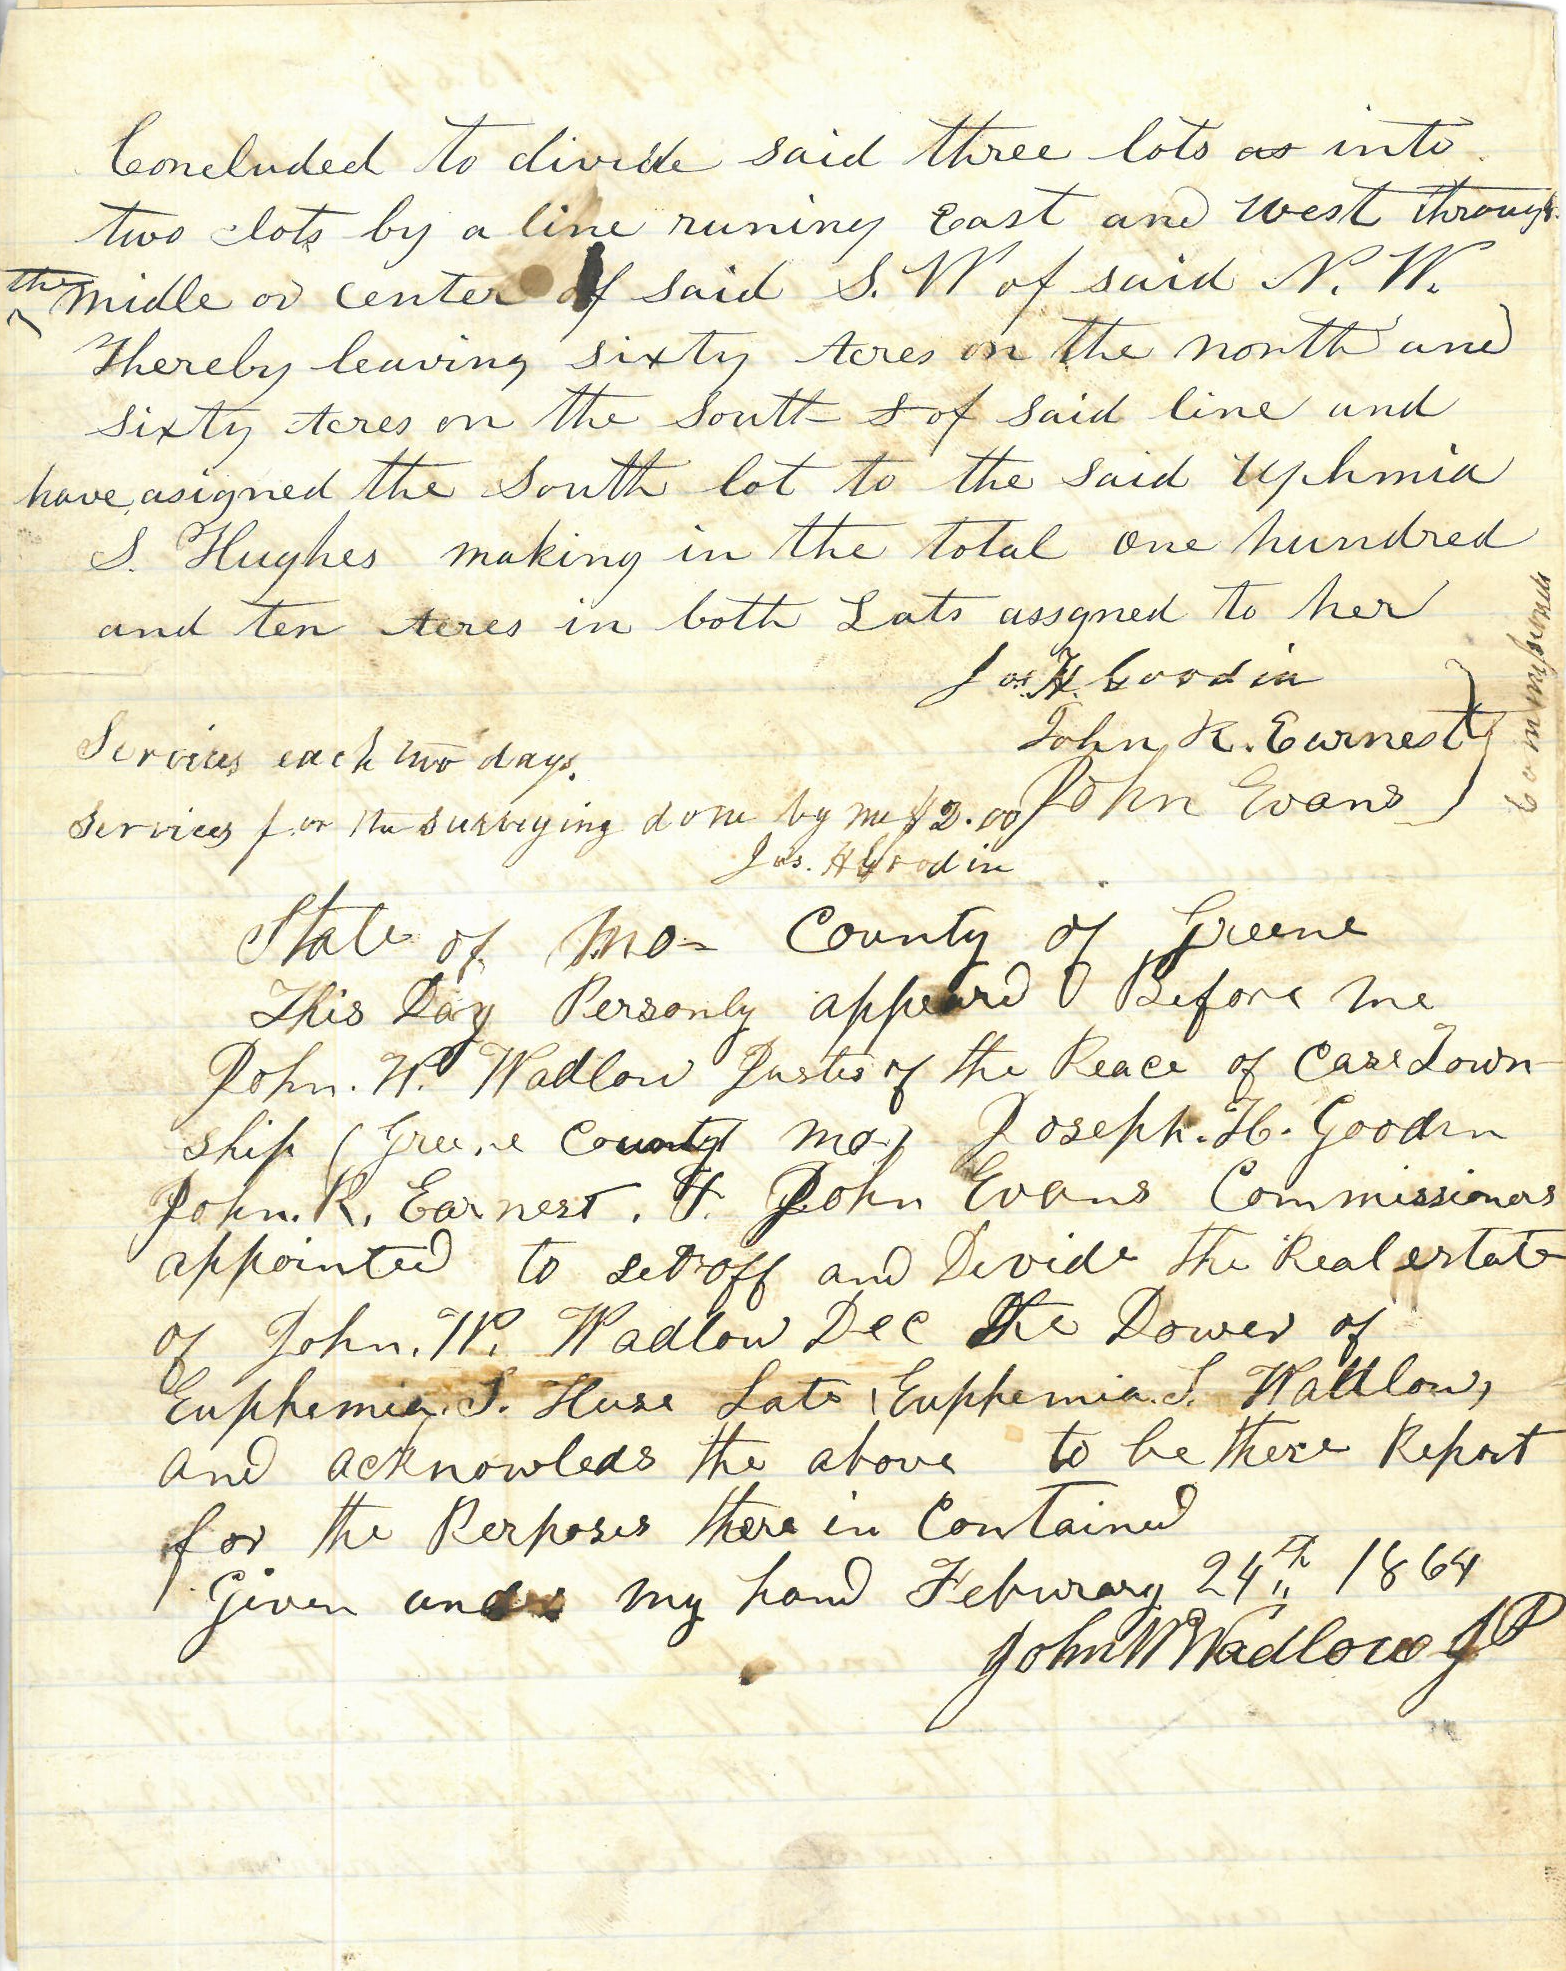 Concluded to divide said three lots as into
two lots by a line runing East and West through
the midle or center of said S. W of said N. W.
Thereby leaving sixty Acres on the north and
sixty Acres on the South s of said line and
have asigned the South lot to the said Uphmia
S. Hughes making in the total one hundred
and ten Acres in both Lats assgned to her
Jos. H. Goodin
John R. Earnest
John Evans
Commissioners
Services each two days.
Services for the surveying done by me $2.00
Jos. H Goodin
State of Mo- County of Greene
This Day Personly appeard Before me
John. W. Wadlow Justis of the Peace of Cass Town
ship (Greene County Mo) Joseph. H. Goodin
John. R. Earnest. &. John Evans Commissioners
appointed to set off and Devide the Real estate
of John. W. Wadlow Dec the Dower of
Euphemia. S. Huse Late (Euphemia. S. Wadlow,
and acknowleds the above to be there Report
for the Perposes there in Contained
Given under my hand Feburary 24th 1864
John W Wadlow JP